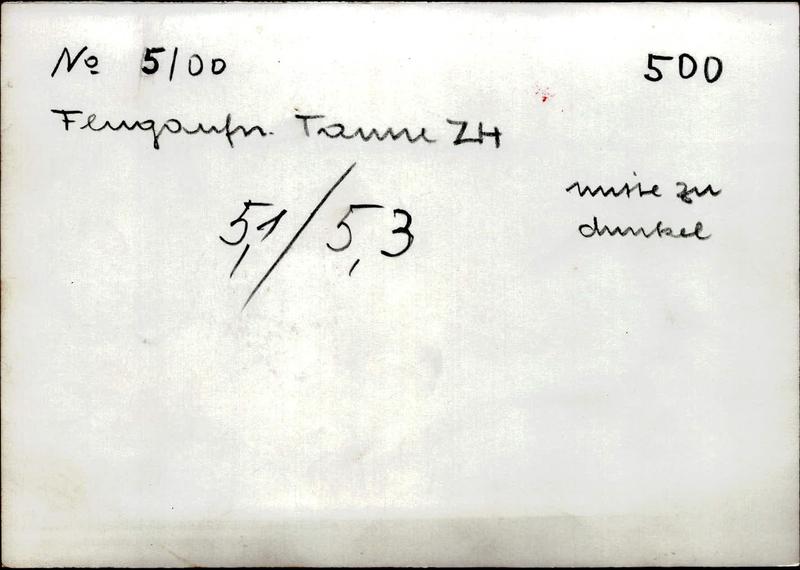 No 5/00
500
Flugaufn. Tanne ZH
mitte zu
dunkel
5,1/5,3